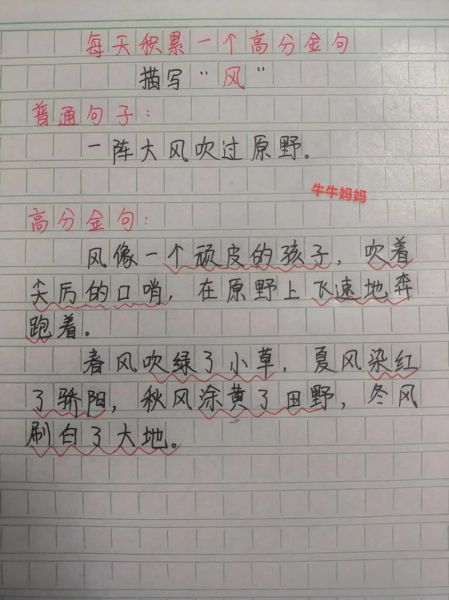 每天积累一个高分金句
描写“风”
普通句子：
一阵大风吹过原野。
牛牛妈妈
高分金句：
风像一个顽皮的孩子，吹着
尖厉的口哨，在原野上飞速地奔
跑着。
春风吹绿了小草，夏风染红
了骄阳，秋风涂黄了田野，冬风
刷白了大地。